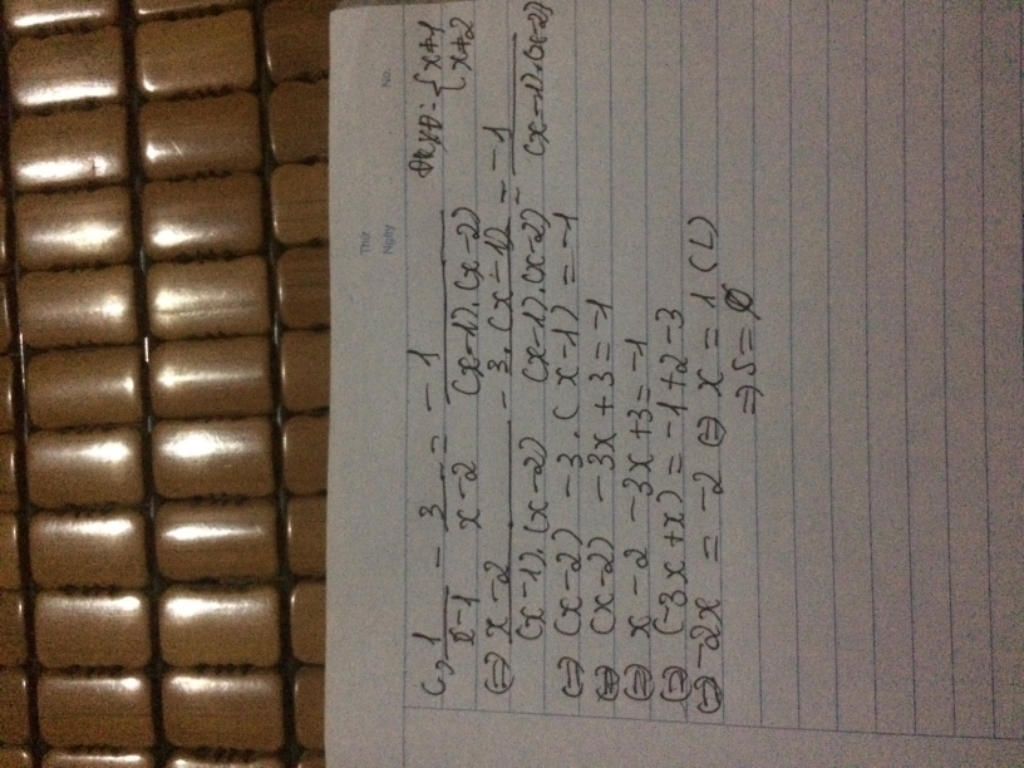 Thứ
Ngày No.
c, 1/(x-1) - 3/(x-2) = -1/((x-1).(x-2)) ĐKXĐ: { x≠1
x≠2
⇔ (x-2)/((x-1).(x-2)) - 3.(x-1)/((x-1).(x-2)) = -1/((x-1).(x-2))
⇔ (x-2) -3.(x-1) = -1
⇔ (x-2) -3x+3=-1
⇔ x-2-3x+3=-1
⇔ (-3x+x)=-1+2-3
⇔ -2x = -2 ⇔ x=1 (L)
⇒ S=Ø